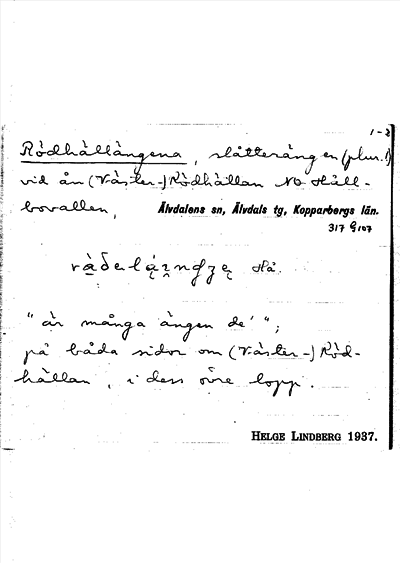 1-2
Rödhällängena, slätterängen (plur.!)
vid ån (Väster-)Rödhällan NO Håll-
bovallen, Älvdalens sn, Älvdals tg, Kopparbergs län.
317 G 107
Hå.
"är många ängen de'";
på båda sidor om (Väster-)Röd-
hällan, i dess övre lopp.
HELGE LINDBERG 1937.